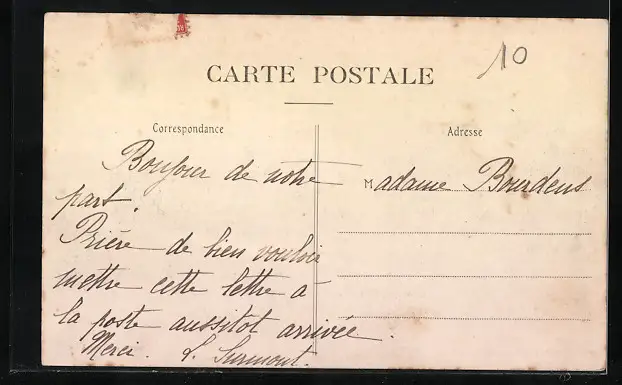 10
CARTE POSTALE
Correspondance
Adresse
Bonjour de notre
part.
Prière de bien vouloir
mettre cette lettre à
la poste aussitot arrivée.
Merci. S. Surmont.
Madame Bourdens